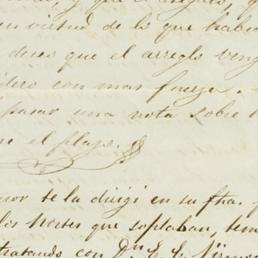 y que el
en virtud de lo que habia
desea que el arreglo veng
dero con mas fuerza.
pasar una nota sobre l
el plazo.
or te la dirigi en su fha.
los Nortes que soplaban, tem
tratando con Dn. E. L.